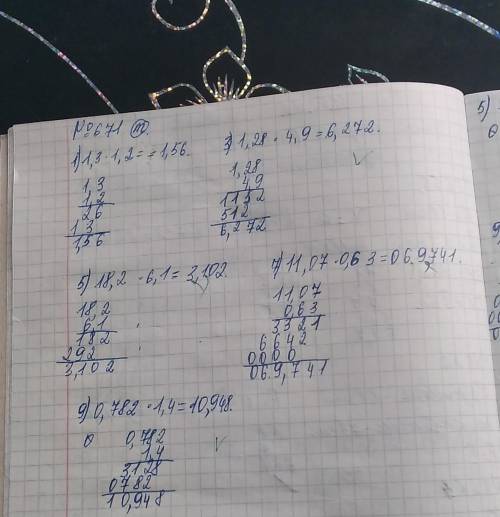 №671 (т).
1) 1,3 · 1,2 = = 1,56.
1,3
1,2
26
13
1,56
3) 1,28 · 4,9 = 6,272.
1,28
4,9
1152
512
6,272
5) 18,2 · 6,1 = 3,102.
18,2
6,1
182
292
3,102
7) 11,07 · 0,63 = 06.9741.
11,07
0,63
3321
6642
0000
069,741
9) 0,782 · 1,4 = 10,948.
0 0,782
1,4
3128
0782
10,948
5)
0